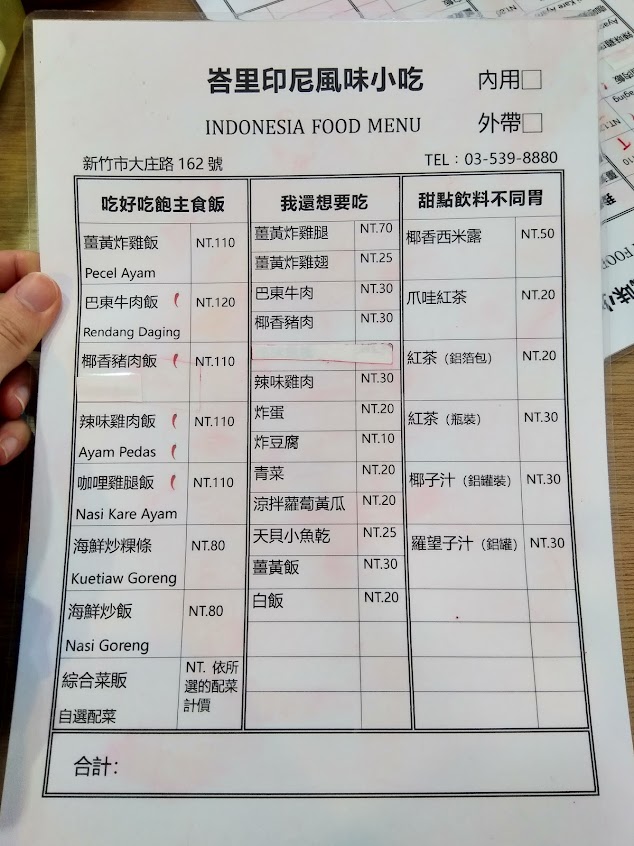 峇里印尼風味小吃 內用□
INDONESIA FOOD MENU 外帶□
新竹市大庄路 162 號 TEL：03-539-8880
吃好吃飽主食飯
薑黃炸雞飯 NT.110
Pecel Ayam
巴東牛肉飯 NT.120
Rendang Daging
椰香豬肉飯 NT.110
辣味雞肉飯 NT.110
Ayam Pedas
咖哩雞腿飯 NT.110
Nasi Kare Ayam
海鮮炒粿條 NT.80
Kuetiaw Goreng
海鮮炒飯 NT.80
Nasi Goreng
綜合菜販 NT. 依所
選的配菜
計價
自選配菜
我還想要吃
薑黃炸雞腿 NT.70
薑黃炸雞翅 NT.25
巴東牛肉 NT.30
椰香豬肉 NT.30
辣味雞肉 NT.30
炸蛋 NT.20
炸豆腐 NT.10
青菜 NT.20
涼拌蘿蔔黃瓜 NT.20
天貝小魚乾 NT.25
薑黃飯 NT.30
白飯 NT.20
甜點飲料不同胃
椰香西米露 NT.50
爪哇紅茶 NT.20
紅茶（鋁箔包） NT.20
紅茶（瓶裝） NT.30
椰子汁（鋁罐裝） NT.30
羅望子汁（鋁罐） NT.30
合計：